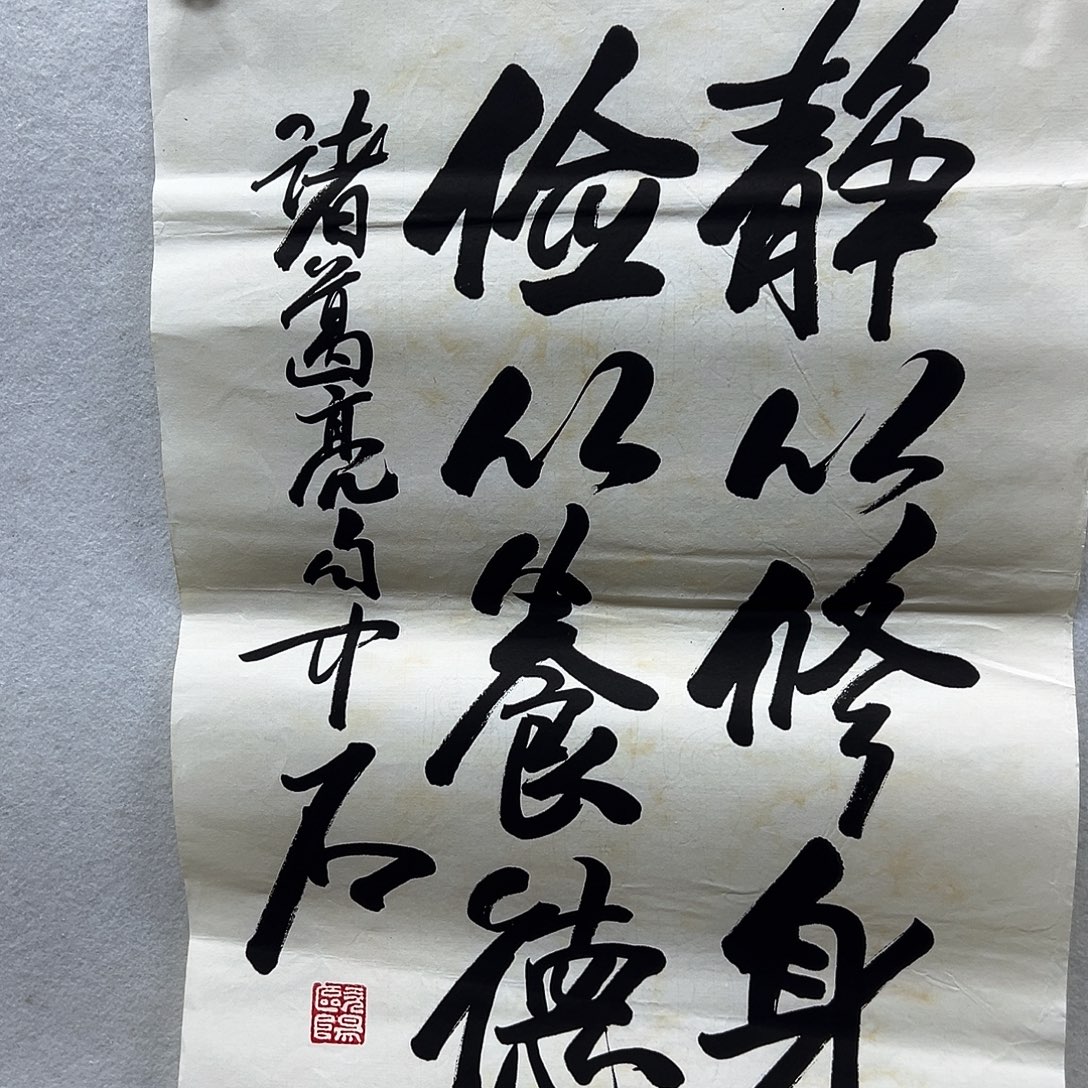 静以修身
俭以養德
诸葛亮句中石